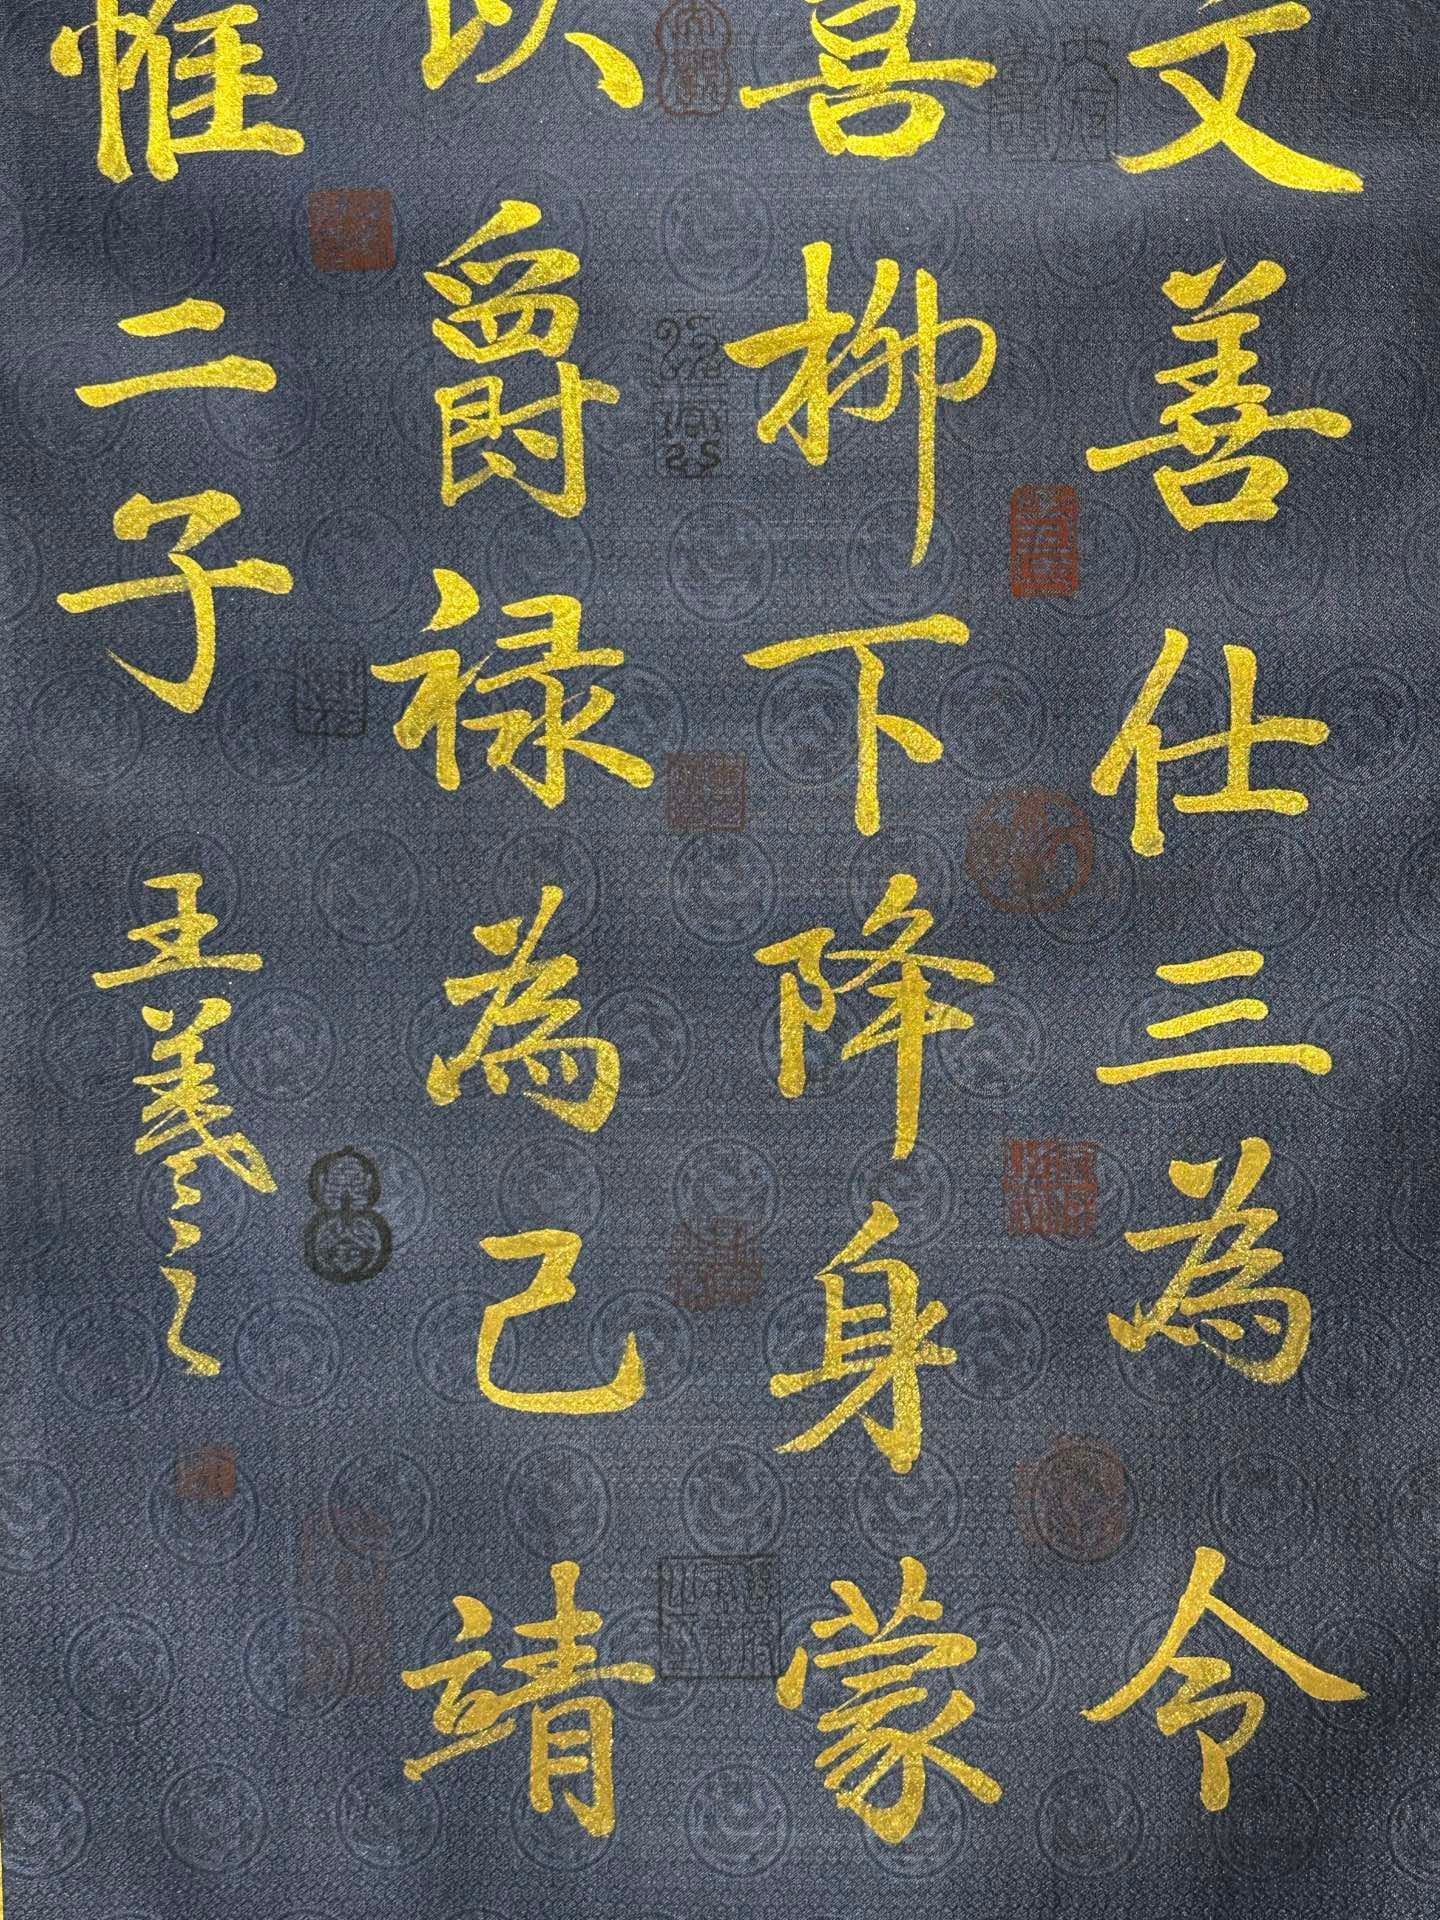 文善仕三為令
喜柳下降身蒙
以爵禄為己靖
惟二子王羲之